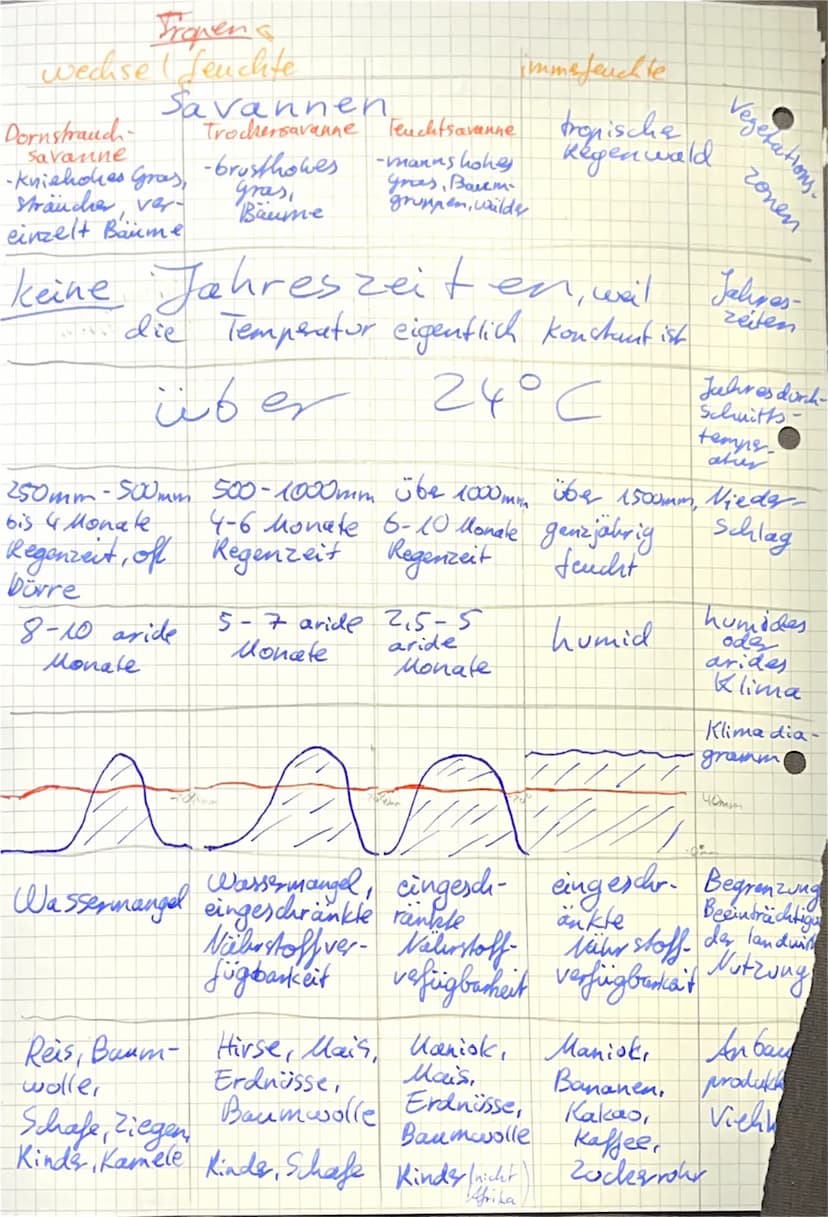 Tropen
wechselfeuchte immerfeuchte
Savannen
Dornstrauch-
savanne
-kniehohes Gras,
sträucher, ver-
einzelt Bäume
Trockensavanne
-brusthohes
Gras,
Bäume
Feuchtsavanne
-mannshohes
Gras, Baum-
gruppen, wälder
tropische
Regenwald
Vegetations-
zonen
keine Jahreszeiten, weil
die Temperatur eigentlich konstant ist
Jahres-
zeiten
über 24°C
Jahresdurch-
schnitts-
temper-
atur
250mm-500mm
bis 4 Monate
Regenzeit, oft
Dürre
500-1000mm
4-6 Monate
Regenzeit
über 1000mm
6-10 Monate
Regenzeit
über 1500mm,
ganzjährig
feucht
Nieder-
schlag
8-10 aride
Monate
5-7 aride
Monate
2,5-5
aride
Monate
humid
humides
oder
arides
Klima
Klimadia-
gramm
40mm
Wassermangel
Wassermangel,
eingeschränkte
Nährstoffver-
fügbarkeit
eingesch-
ränkte
Nährstoff-
verfügbarkeit
eingeschr-
änkte
Nährstoff-
verfügbarkeit
Begrenzung
Beeinträchtigu
der landwirt
Nutzung
Reis, Baum-
wolle,
Schafe, Ziegen,
Rinder, Kamele
Hirse, Mais,
Erdnüsse,
Baumwolle
Rinder, Schafe
Maniok,
Mais,
Erdnüsse,
Baumwolle
Rinder (nicht
Afrika)
Maniok,
Bananen,
Kakao,
Kaffee,
Zuckerrohr
Anbau
produkt
Vieh